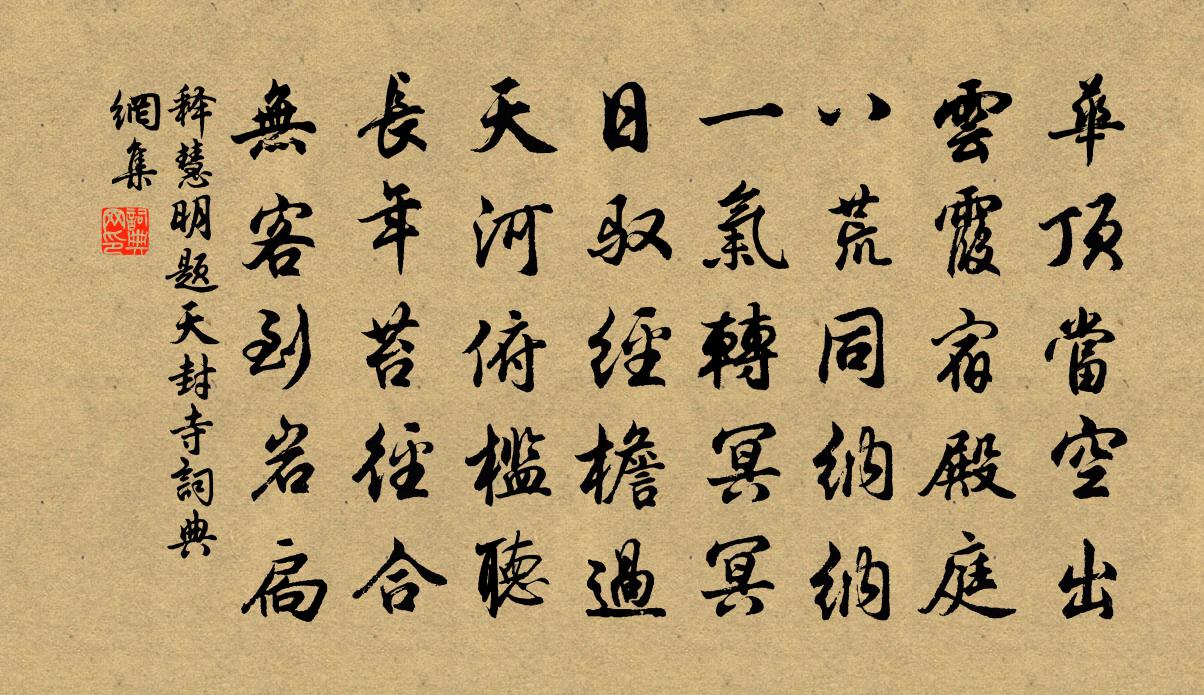 華頂當空出
雲霞宿殿庭
八荒同納納
一氣轉冥冥
日馭經檐過
天河俯檻聽
長年苔徑合
無客到岩扃
释慧明題天封寺詞典
網集
詞典網印